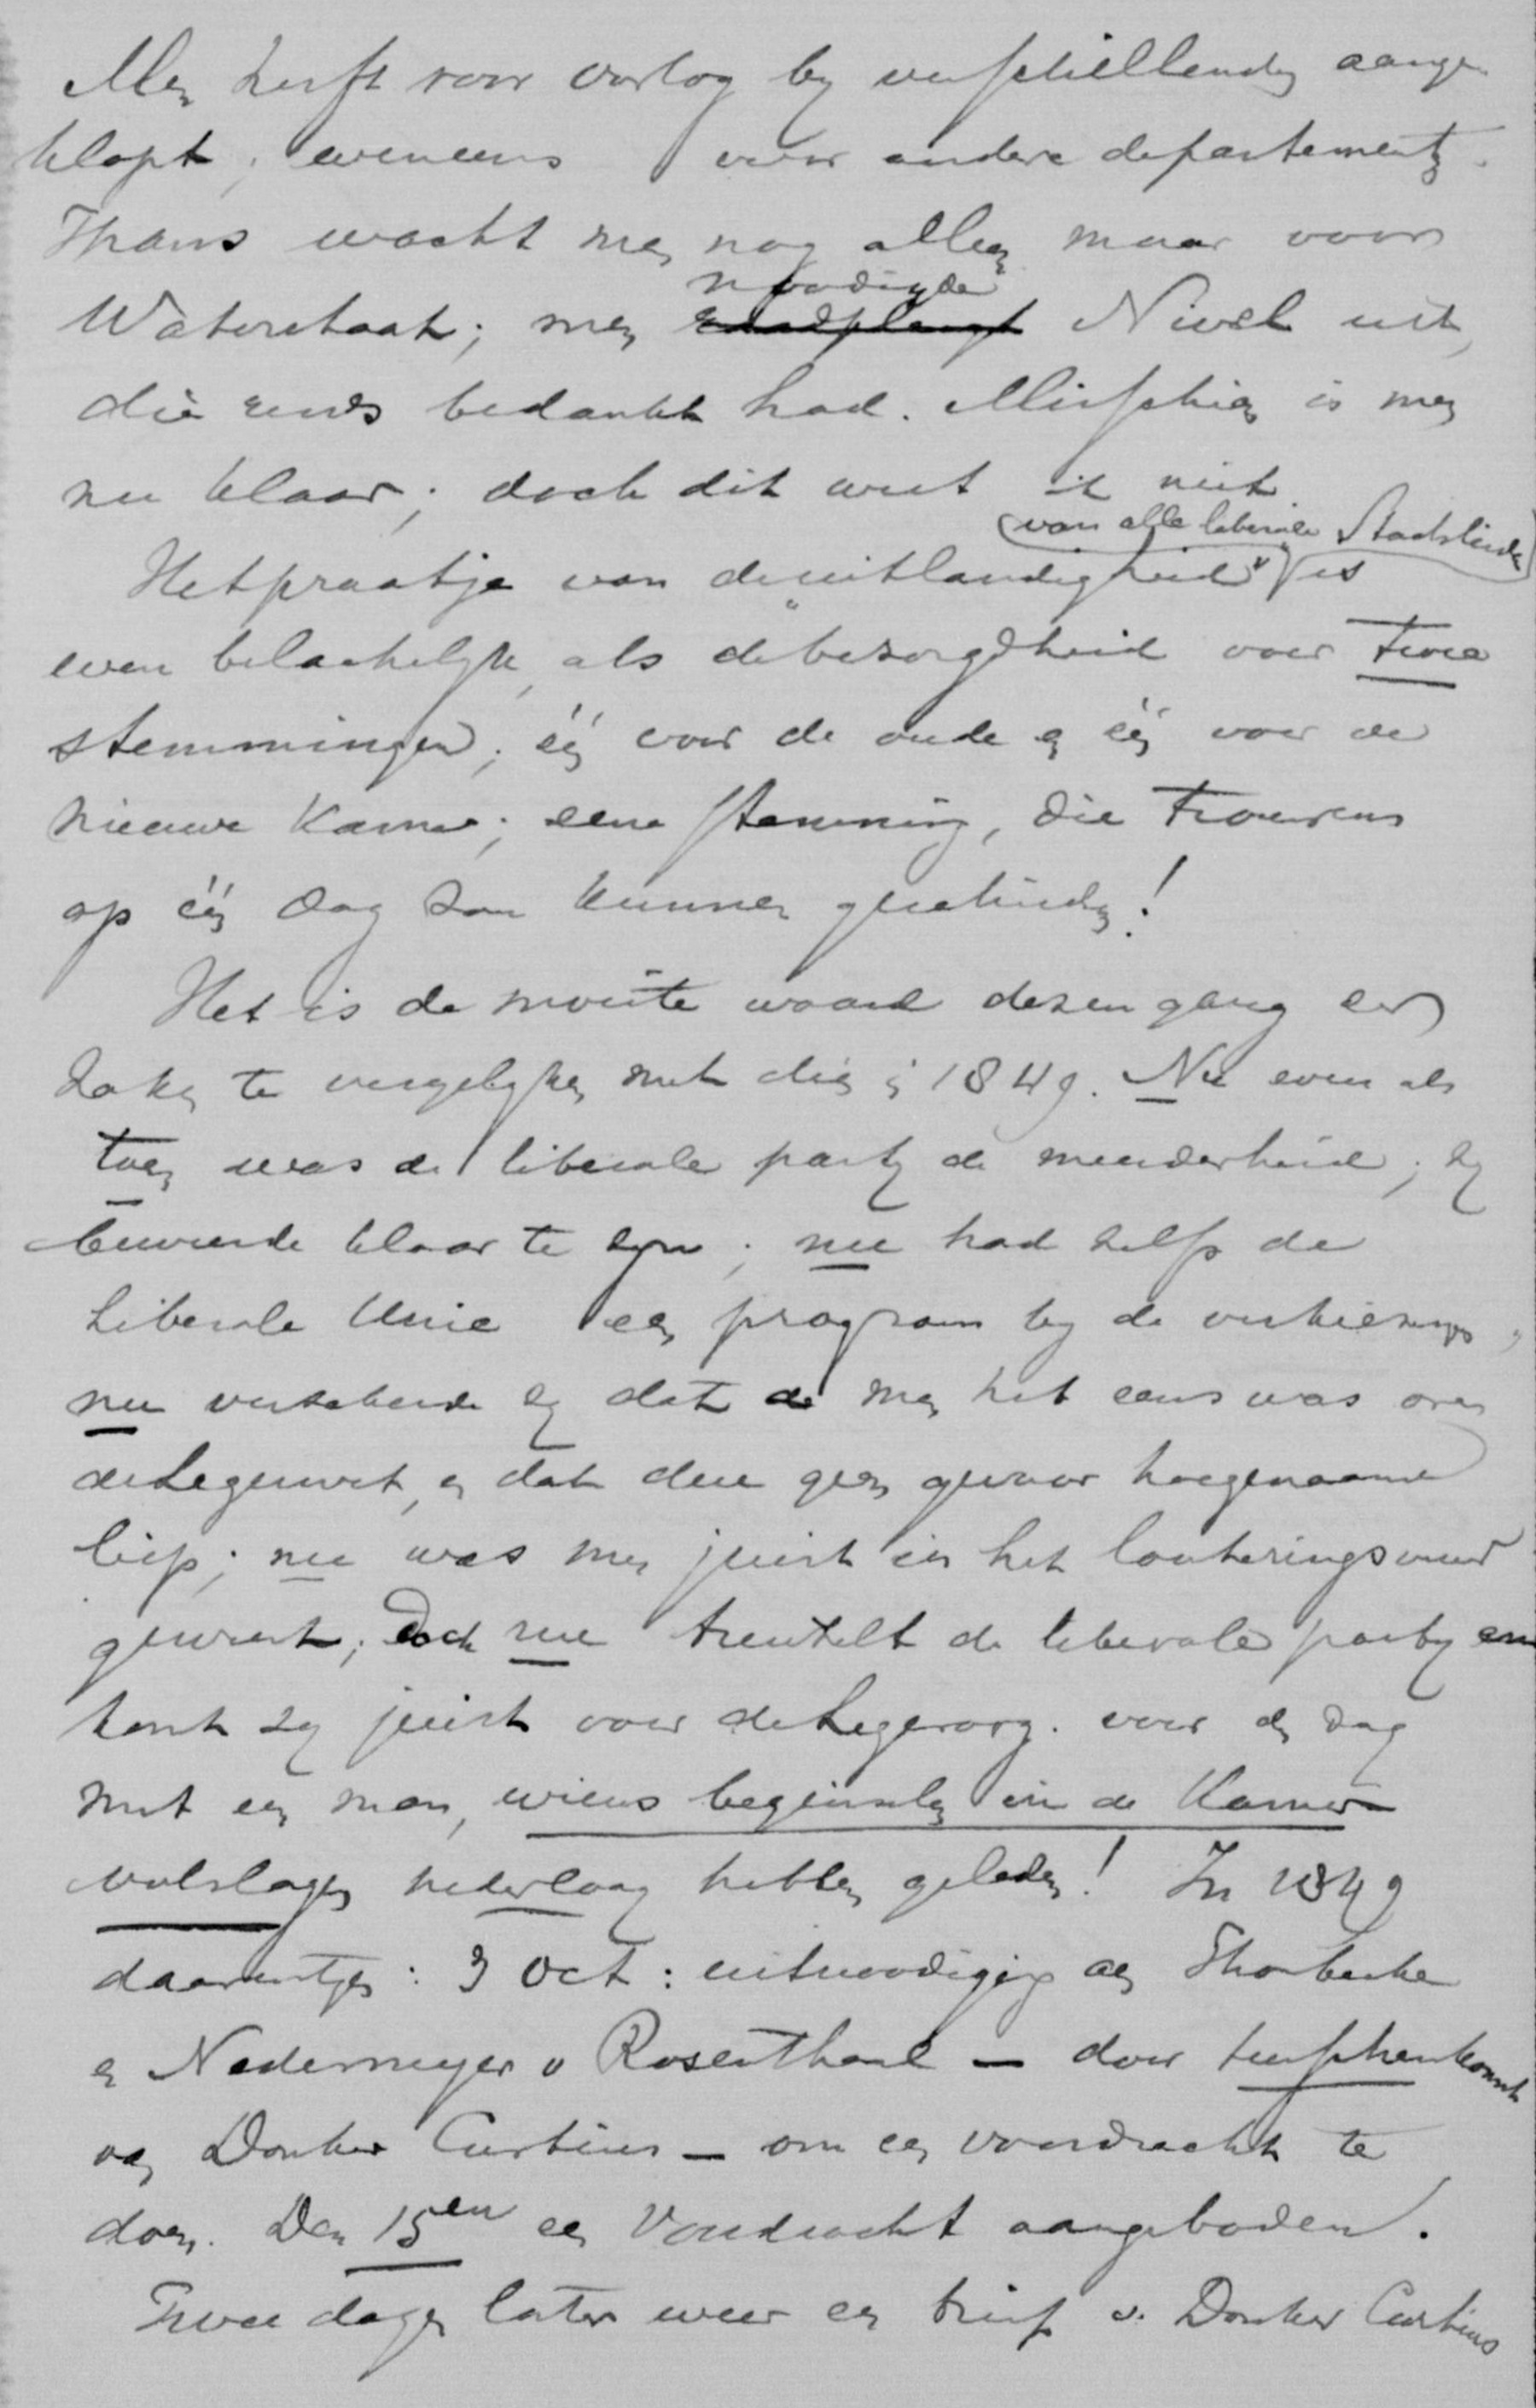 Men heeft voor oorlog bij verschillenden aange-
klopt; eveneens voor andere departementen.
Thans wacht men nog alleen maar voor
noodigde
Waterstaat; men raadpleegt Nivel uit,
die reeds bedankt had. Misschien is men
nu klaar; doch dit weet ik niet.
(van alle liberale Staatslieden)
Het praatje van de "uitlandigheid" is
even belachelijk, als de bezorgdheid over twee
stemmingen; één voor de oude en één voor de
nieuwe Kamer; eene stemming, die trouwens
op één dag zou kunnen geschieden!
Het is de moeite waard dezen gang der
zaken te vergelijken met dien in 1849. Nu even als
toen was de liberale partij de meerderheid; zij
beweerde klaar te zijn; nu had zelfs de
Liberale Unie een program bij de verkiezingen,
nu verzekerde zij dat de men het eens was over
de Legerwet, en dat deze geen gevaar hoegenaamd
liep; nu was men juist in het louteringsvuur
geweest; Doch nu treuzelt de liberale partij en
komt zij juist voor de Legerorg. voor den dag
met een man, wiens beginselen in de Kamer
volslagen nederlaag hebben geleden! In 1849
daarentegen: 3 Oct: uitnoodiging aan Thorbecke
en Nedermeyer v Rosenthal — door tusschenkomst
van Donker Curtius — om een voordracht te
doen. Den 15en een Voordracht aangeboden.
Twee dagen later weer een brief v. Donker Curtius